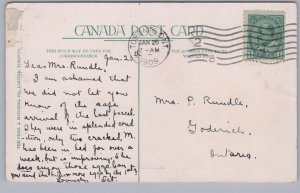 CANADA POST CARD
THIS SPACE MAY BE USED FOR
CORRESPONDENCE.
Jan. 25
Dear Mrs. Rundle,
I am ashamed that
we did not let you
know of the safe
arrival of the last parcel
They were in splendid con-
dition, only two cracked. M.
has been in bed for over a
week, but is improving. She
does enjoy those eggs.
you and the
JAN 25
7-AM
1909
Mrs. P. Rundle,
Goderich,
Ontario.